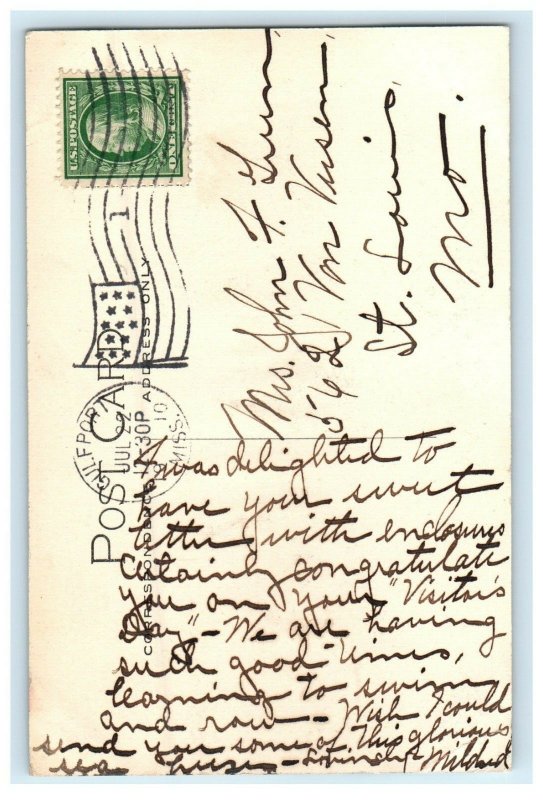 U.S. POSTAGE
ONE CENT
1
GULFPORT
JUL 22
12 30P
1910
MISS.
POST CARD
CORRESPONDENCE
ADDRESS ONLY
Mrs. John F. Gunn
Von Versen
St. Louis,
Mo.
I was delighted to
have your sweet
letter with enclosures
Certainly congratulate
you on your "Visitor's
Day" - We are having
such good times,
learning to swim
and row - Wish I could
send you some of this glorious
sea breeze - Lovingly Mildred